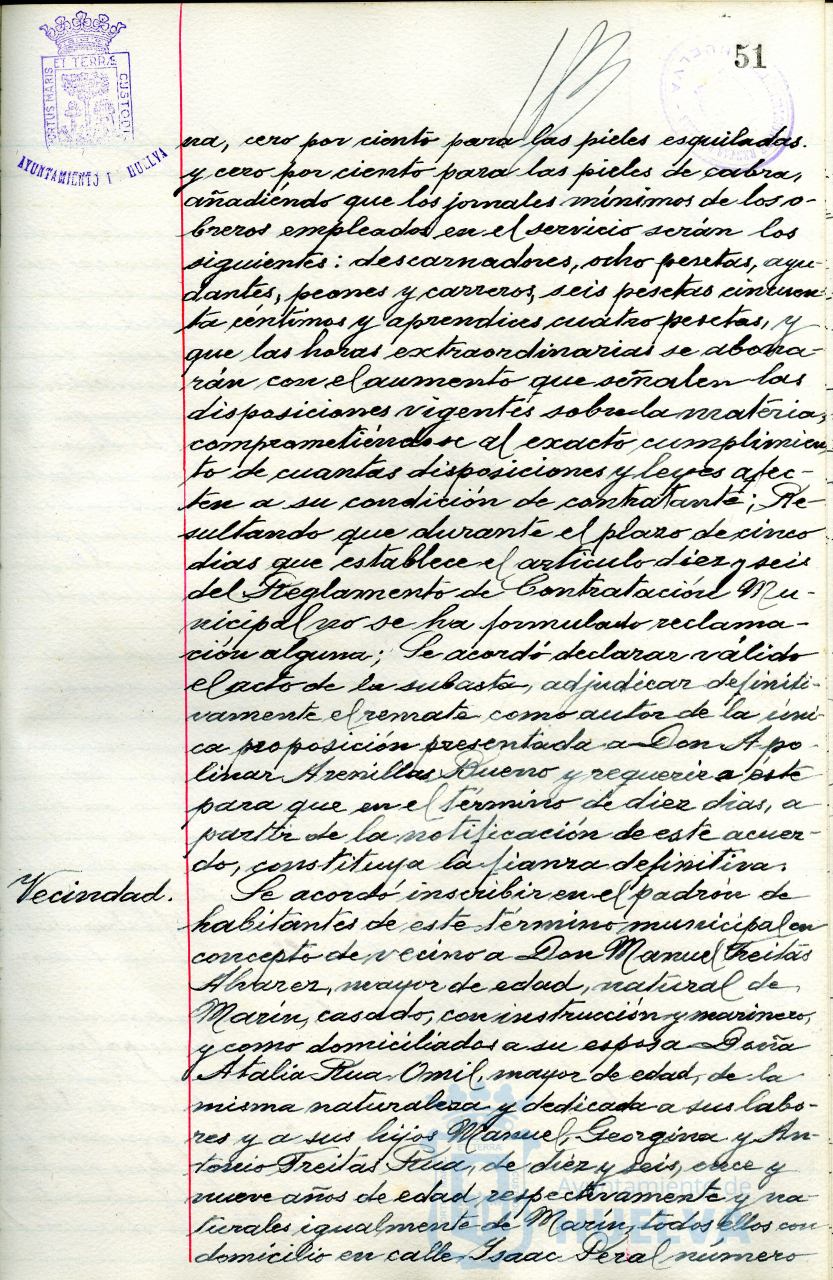 51
PORTUS MARIS ET TERRÆ CUSTODIA
AYUNTAMIENTO DE HUELVA
na, cero por ciento para las pieles esquiladas.
y cero por ciento para las pieles de cabra,
añadiéndo que los jornales mínimos de los o-
breros empleados en el servicio serán los
siguientes: descarnadores, ocho pesetas, ayu-
dantes, peones y carreros, seis pesetas cincuen-
ta céntimos y aprendices cuatro pesetas, y
que las horas extraordinarias se abona-
rán con el aumento que señalen las
disposiciones vigentes sobre la materia,
comprometiéndose al exacto cumplimien-
to de cuantas disposiciones y leyes afec-
ten a su condición de contratante; Re-
sultando que durante el plazo de cinco
dias que establece el artículo diez y seis
del Reglamento de Contratación Mu-
nicipal no se ha formulado reclama-
ción alguna; Se acordó declarar válido
el acto de la subasta, adjudicar definiti-
vamente el remate como autor de la úni-
ca proposición presentada a Don Apo-
linar Arenillas Bueno y requerir a éste
para que en el término de diez dias, a
partir de la notificación de este acuer-
do, constituya la fianza definitiva.
Vecindad. Se acordó inscribir en el padron de
habitantes de este término municipal en
concepto de vecino a Don Manuel Freitas
Alvarez, mayor de edad, natural de
Marín, casado, con instrucción y marinero,
y como domiciliados a su esposa Doña
Atalia Rua Omil, mayor de edad, de la
misma naturaleza y dedicada a sus labo-
res y a sus hijos Manuel, Georgina y An-
tonio Freitas Rua, de diez y seis, once y
nueve años de edad respectivamente y na-
turales igualmente de Marín, todos ellos con
domicilio en calle Isaac Peral número
Ayuntamiento de
HUELVA